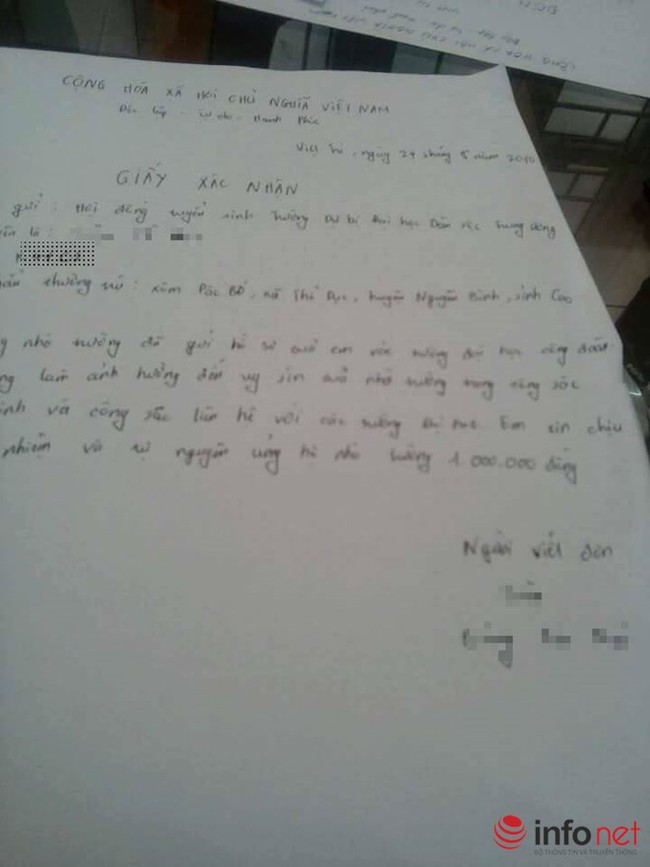 CỘNG HÒA XÃ HỘI CHỦ NGHĨA VIỆT NAM
Độc lập - Tự do - Hạnh Phúc
Việt Trì, ngày 24 tháng 5 năm 2010
GIẤY XÁC NHẬN
gửi: Hội đồng tuyển sinh trường Dự bị Đại học Dân tộc Trung ương
là:
thường trú: xóm Pác Bó, xã Thể Dục, huyện Nguyên Bình, tỉnh Cao
nhà trường đã gửi hồ sơ của em vào trường đại học
làm ảnh hưởng đến uy tín của nhà trường trong công tác
và công sức liên hệ với các trường Đại học. Em xin chịu
nhiệm và tự nguyện ủng hộ nhà trường 1.000.000 đồng
Người viết đơn
infonet
BỘ THÔNG TIN VÀ TRUYỀN THÔNG